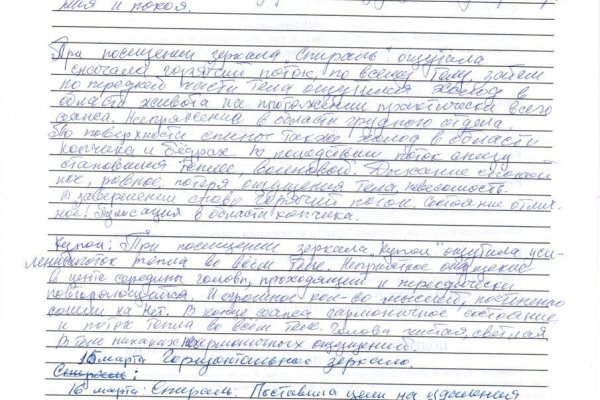 ния и покоя.
При посещении зеркала "Спираль" ощутила
сначала горячий поток, по всему телу, затем
по передней части тела ощущался холод в
области живота на протяжении практически всего
сеанса. Напряжение в области грудного отдела.
По поверхности спины также холод в области
копчика и бёдрах. В последствии поток снизу
становился теплее, волновой. Дыхание спокой
ное, ровное, потеря ощущения тела, невесомость.
В завершении снова горячий поток. Состояние отлич-
ное. Пульсация в области копчика.
Купол: При посещении зеркала "Купол" ощутила уси-
ление поток тепла во всём теле. Неприятное ощущение
в центре середины головы, проходящий и периодически
повторяющийся. И огромное кол-во мыслей, постепенно
сошли на нет. В конце сеанса гармоничное состояние
и поток тепла во всём теле. Голова чистая, светлая
В теле никаких негармоничных ощущений.
15 марта Горизонтальное зеркало.
Спираль:
16 марта: Спираль. Поставила цели на